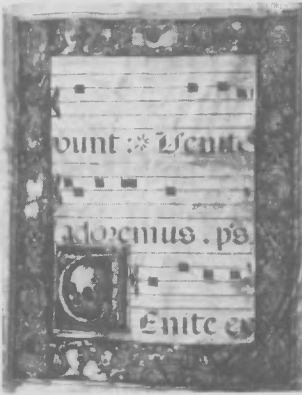 vunt : * Venite
adoremus . ps.
Enite ex